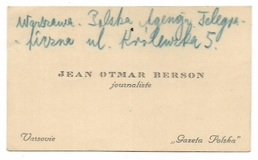 Warszawa. Polska Agencja Telegra-
ficzna ul. Królewska 5.
JEAN OTMAR BERSON
journaliste
Varsovie
„Gazeta Polska"